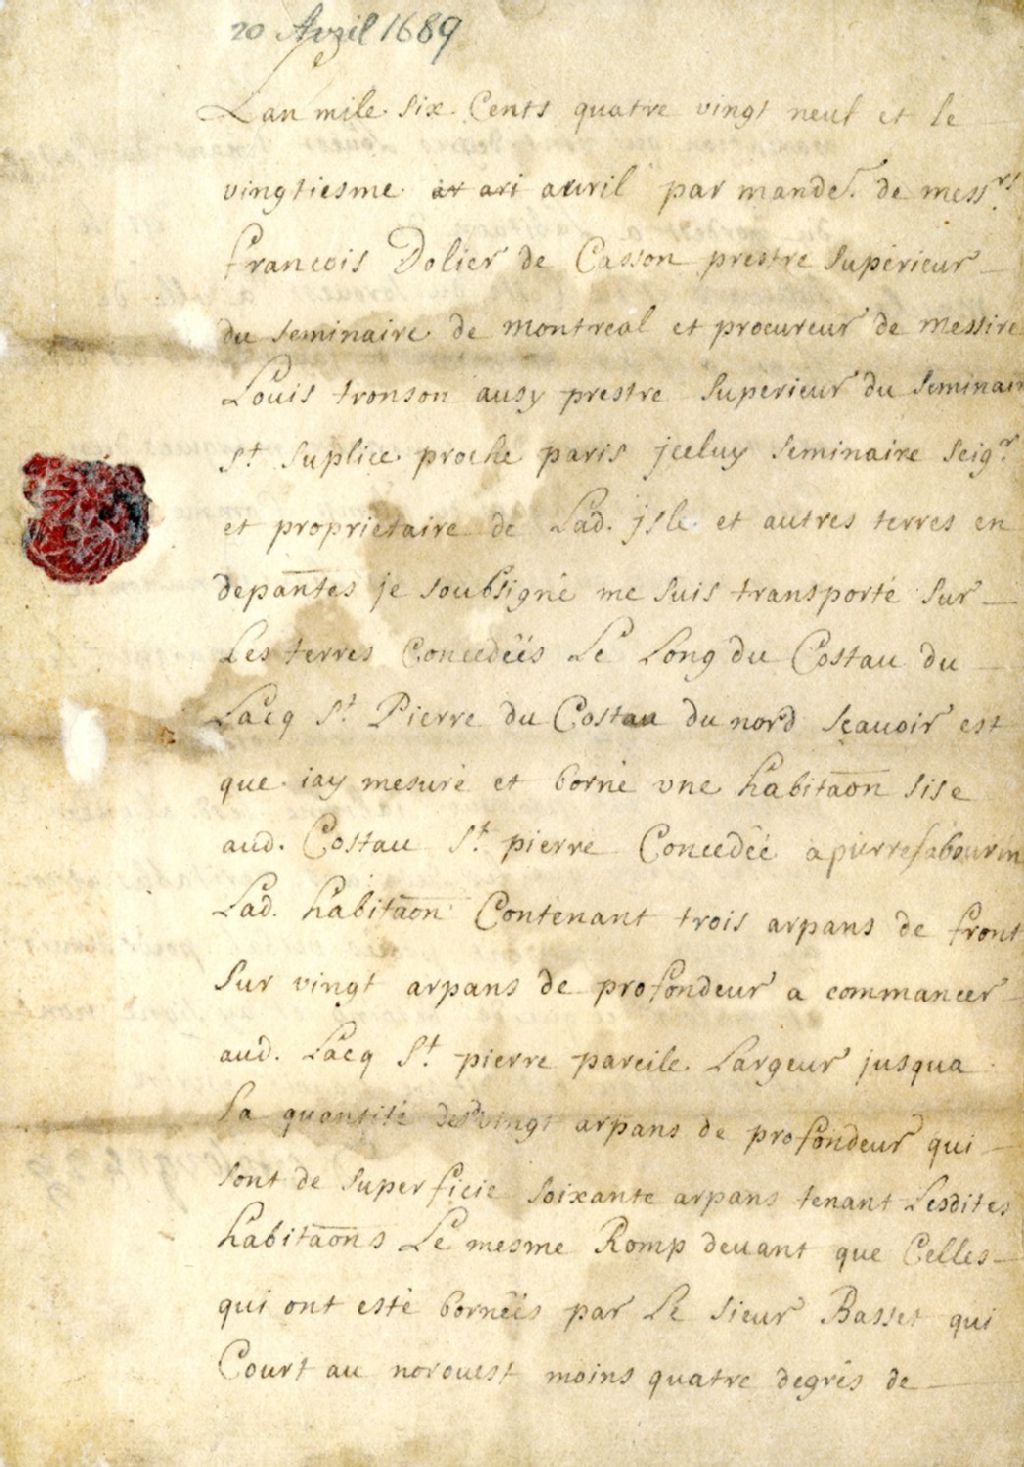 20 Avril 1689
Lan mile six Cents quatre vingt neuf et le
vingtiesme avril par mandet. de messrs.
francois Dolier de Casson prestre Supérieur
du seminaire de montreal et procureur de messire
Louis tronson ausy prestre Supérieur du Seminair
St. Suplice proche paris jceluy Seminaire Seigr.
et propriétaire de Lad. jsle et autres terres en
depantes je soubsigné me suis transporté sur
Les terres Concedéés Le Long du Costau du
Lacq St. Pierre du Costau du nord scauoir est
que iay mesuré et borné vne habitaon sise
aud. Costau St. pierre Concedéé a pierre sabourin
Lad. habitaon Contenant trois arpans de front
Sur vingt arpans de profondeur a commancer
aud. Lacq St. pierre pareile Largeur jusqua
la quantité des vingt arpans de profondeur qui
sont de superficie soixante arpans tenant Lesdites
habitaons Le mesme Romp deuant que Celles
qui ont esté bornéés par Le sieur Basset qui
Court au norouest moins quatre degrés de